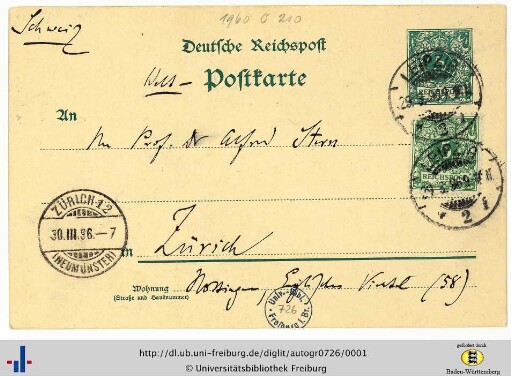 1960 G 210
Schweiz
Deutsche Reichspost
Welt- Postkarte
An
Prof. Dr Alfred Stern
LEIPZIG
REICHSPOST
LEIPZIG
REICHSPOST
2
ZÜRICH 12
30.III.96.–7
(NEUMÜNSTER)
in Zürich
Wohnung
(Straße und Hausnummer)
Hottingen, Englisches Viertel (58)
Univ.-Bibl.
726
Freiburg i. Br.
http://dl.ub.uni-freiburg.de/diglit/autogr0726/0001
© Universitätsbibliothek Freiburg
gefördert durch
Baden-Württemberg